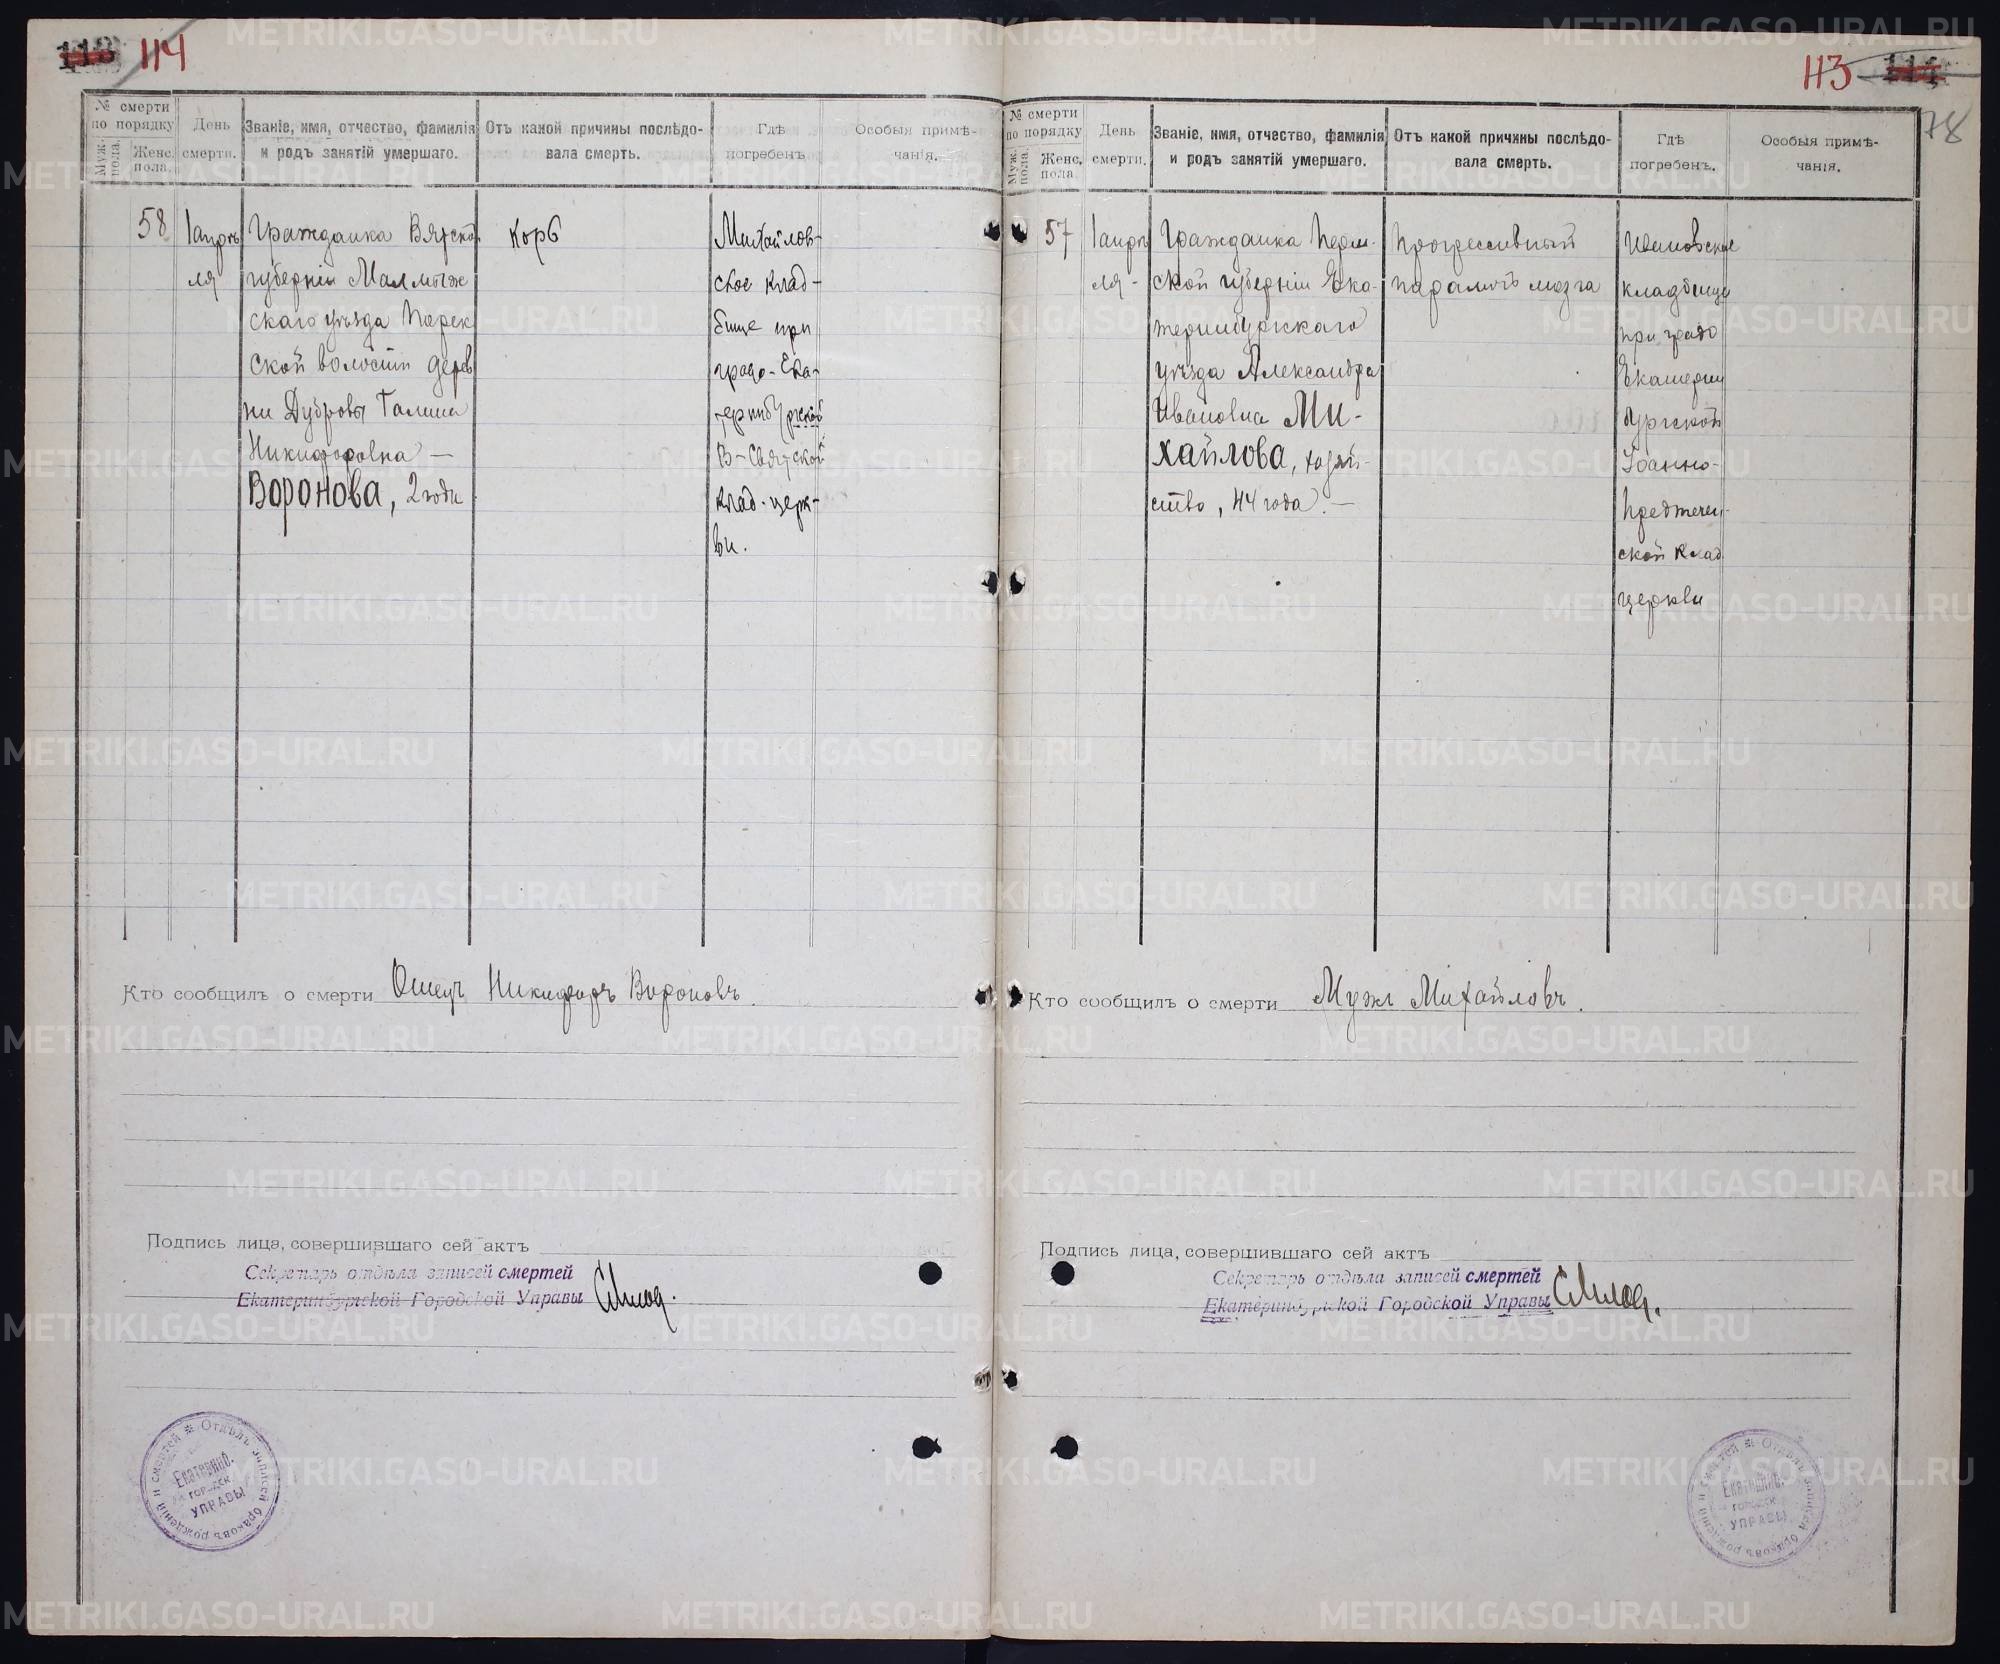 113 114
№ смерти по порядку
Муж. пола.
Женс. пола.
День смерти.
Званіе, имя, отчество, фамилія и родъ занятій умершаго.
Отъ какой причины послѣдовала смерть.
Гдѣ погребенъ.
Особыя примѣчанія.
58
1 апрѣ
ля
Гражданка Вятско
губерніи Малмыж
скаго уѣзда
ской волости дерев
ни Дубровы Галина
Никифоровна —
Воронова, 2 года
Корь
Михайлов-
ское клад-
бище при
градо-Ека-
теринбургской
В-Святской
клад. церк-
ви.
Кто сообщилъ о смерти Отецъ Никифоръ Вороновъ.
Подпись лица, совершившаго сей актъ
Секретарь отдѣла записей смертей
Екатеринбургской Городской Управы
Отдѣлъ записей браковъ рожденій и смертей
Екатеринб.
городск.
УПРАВЫ
113 114
78
№ смерти по порядку
Муж. пола.
Женс. пола.
День смерти.
Званіе, имя, отчество, фамилія и родъ занятій умершаго.
Отъ какой причины послѣдовала смерть.
Гдѣ погребенъ.
Особыя примѣчанія.
57
1 апрѣ
ля -
Гражданка Перм-
ской губерніи Ека-
теринбургскаго
уѣзда Александра
Ивановна Ми-
хайлова, хозяй-
ство, 44 года. —
Прогрессивный
параличъ мозга
Ивановское
кладбище
при градо
Екатерин
бургской
Іоанно-
Предтечен-
ской клад
церкви
Кто сообщилъ о смерти Мужъ Михайловъ.
Подпись лица, совершившаго сей актъ
Секретарь отдѣла записей смертей
Екатеринбургской Городской Управы
Отдѣлъ записей браковъ рожденій и смертей
Екатеринб.
городск.
УПРАВЫ
METRIKI.GASO-URAL.RU